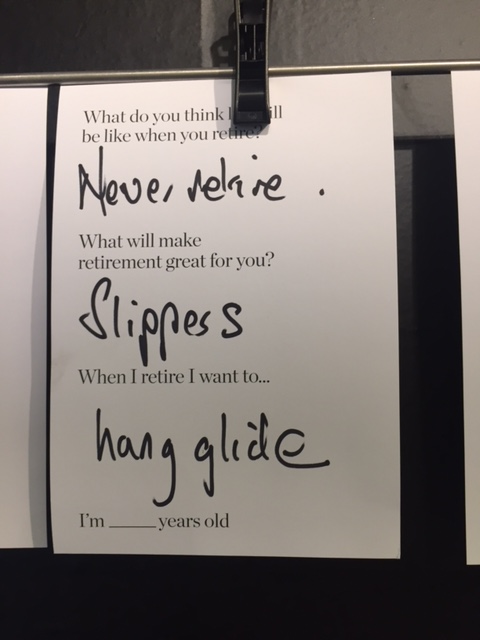 What do you think ill
be like when you retire?
Never retire .
What will make
retirement great for you?
Slippers
When I retire I want to...
hang glide
I'm _____ years old